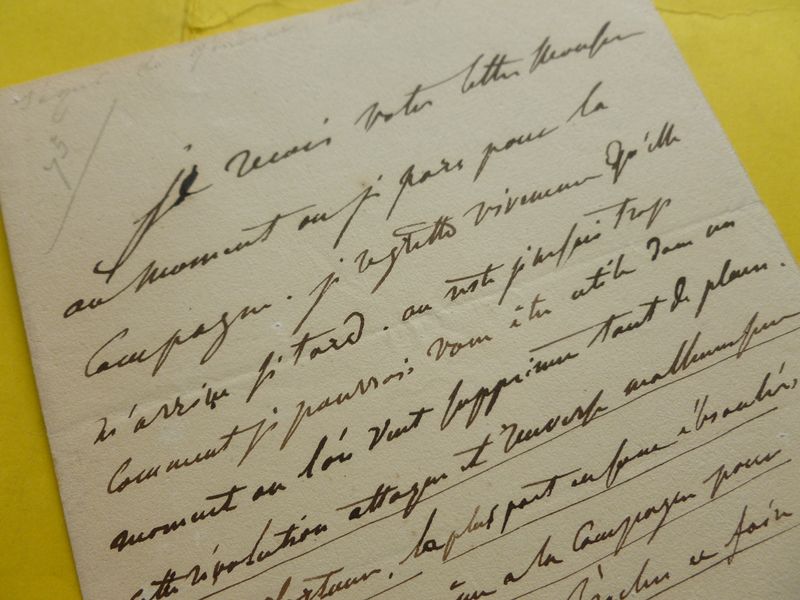 75
je recois votre lettre Monsieur
au moment ou je pars pour la
Campagne. je regrette vivement qu'elle
m'arrive si tard. au reste je ne sais trop
Comment je pourrois vous être utile dans un
moment ou l'on veut supprimer tant de places.
cette révolution attaque et renverse malheureusement
la plus part en sont ébranlés
a la Campagne pour